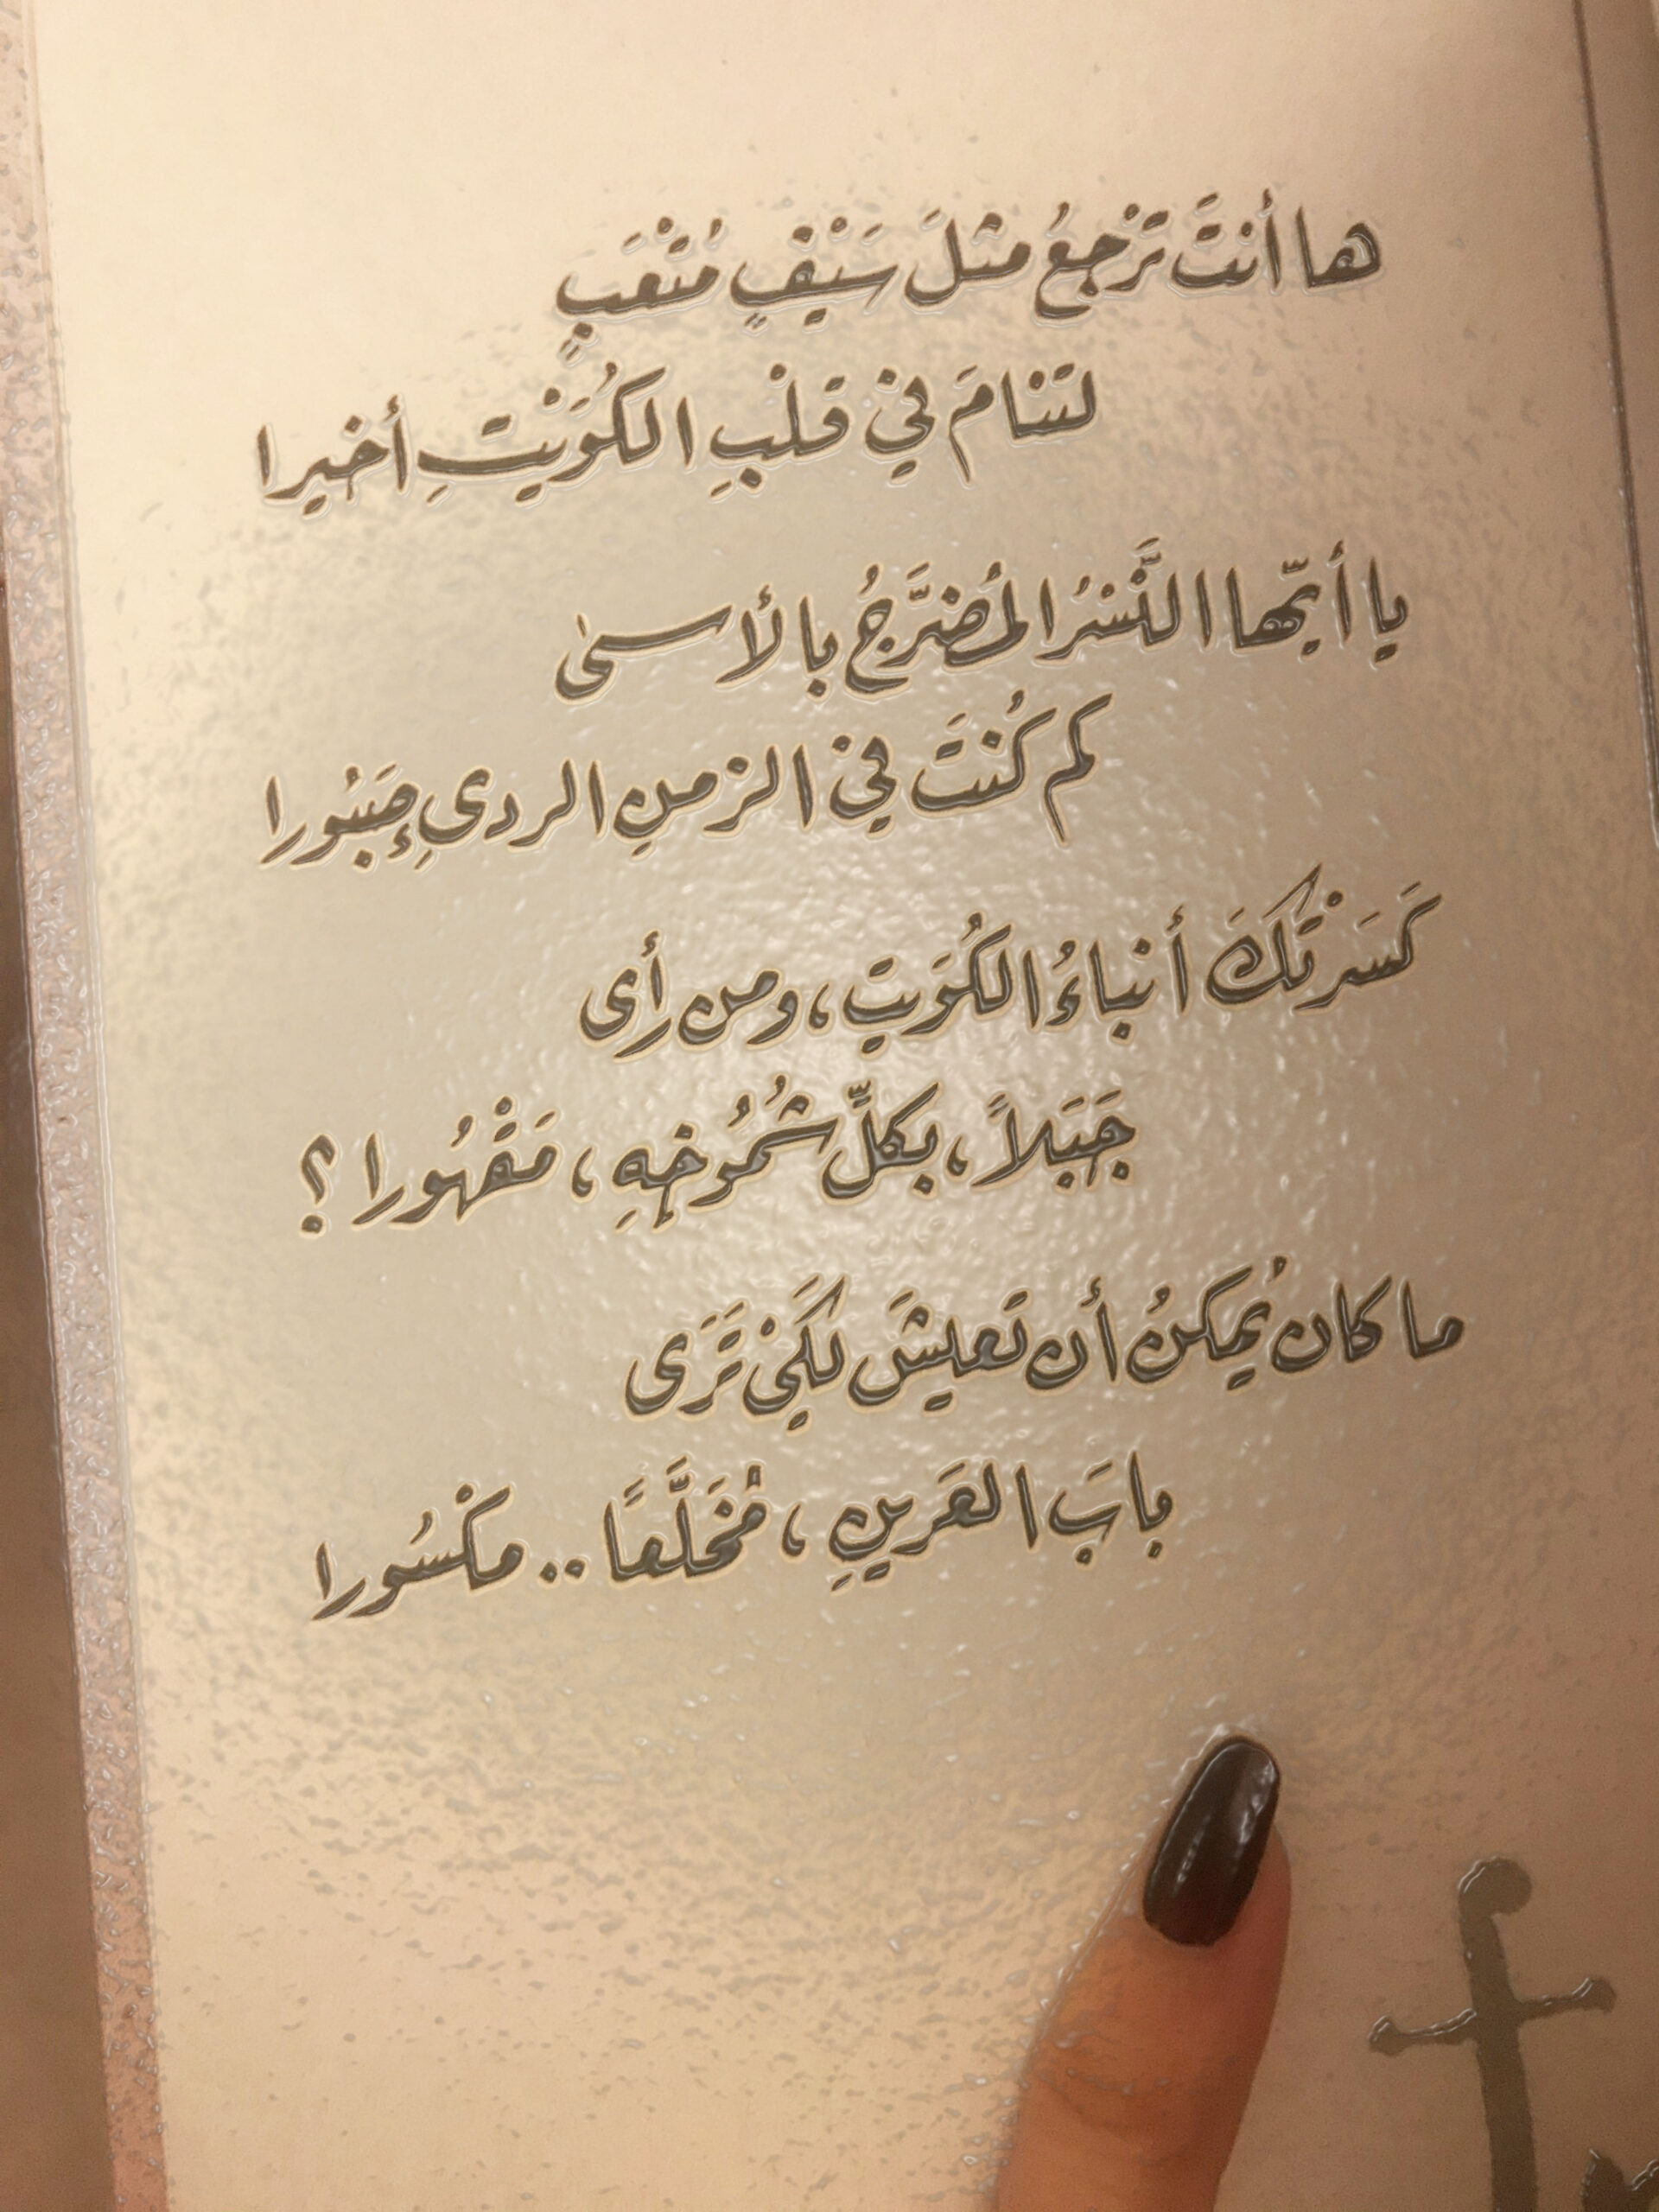 ها أنتَ تَرْجعُ مثلَ سَيْفٍ مُتْعَبٍ
لتنامَ في قلْبِ الكُوَيْتِ أخيرا
يا أيّها النَّسْرُ المُضرَّجُ بالأسى
كم كُنْتَ في الزمنِ الردىءِ صَبُورا
كَسَرْتكَ أنباءُ الكُوَيتِ، ومن رأى
جَبَلاً، بكلِّ شُمُوخهِ، مَقْهُورا؟
ما كان يُمكنُ أن تَعيشَ لكَيْ تَرَى
بابَ العَرينِ، مُخَلَّعاً.. مكْسُورا